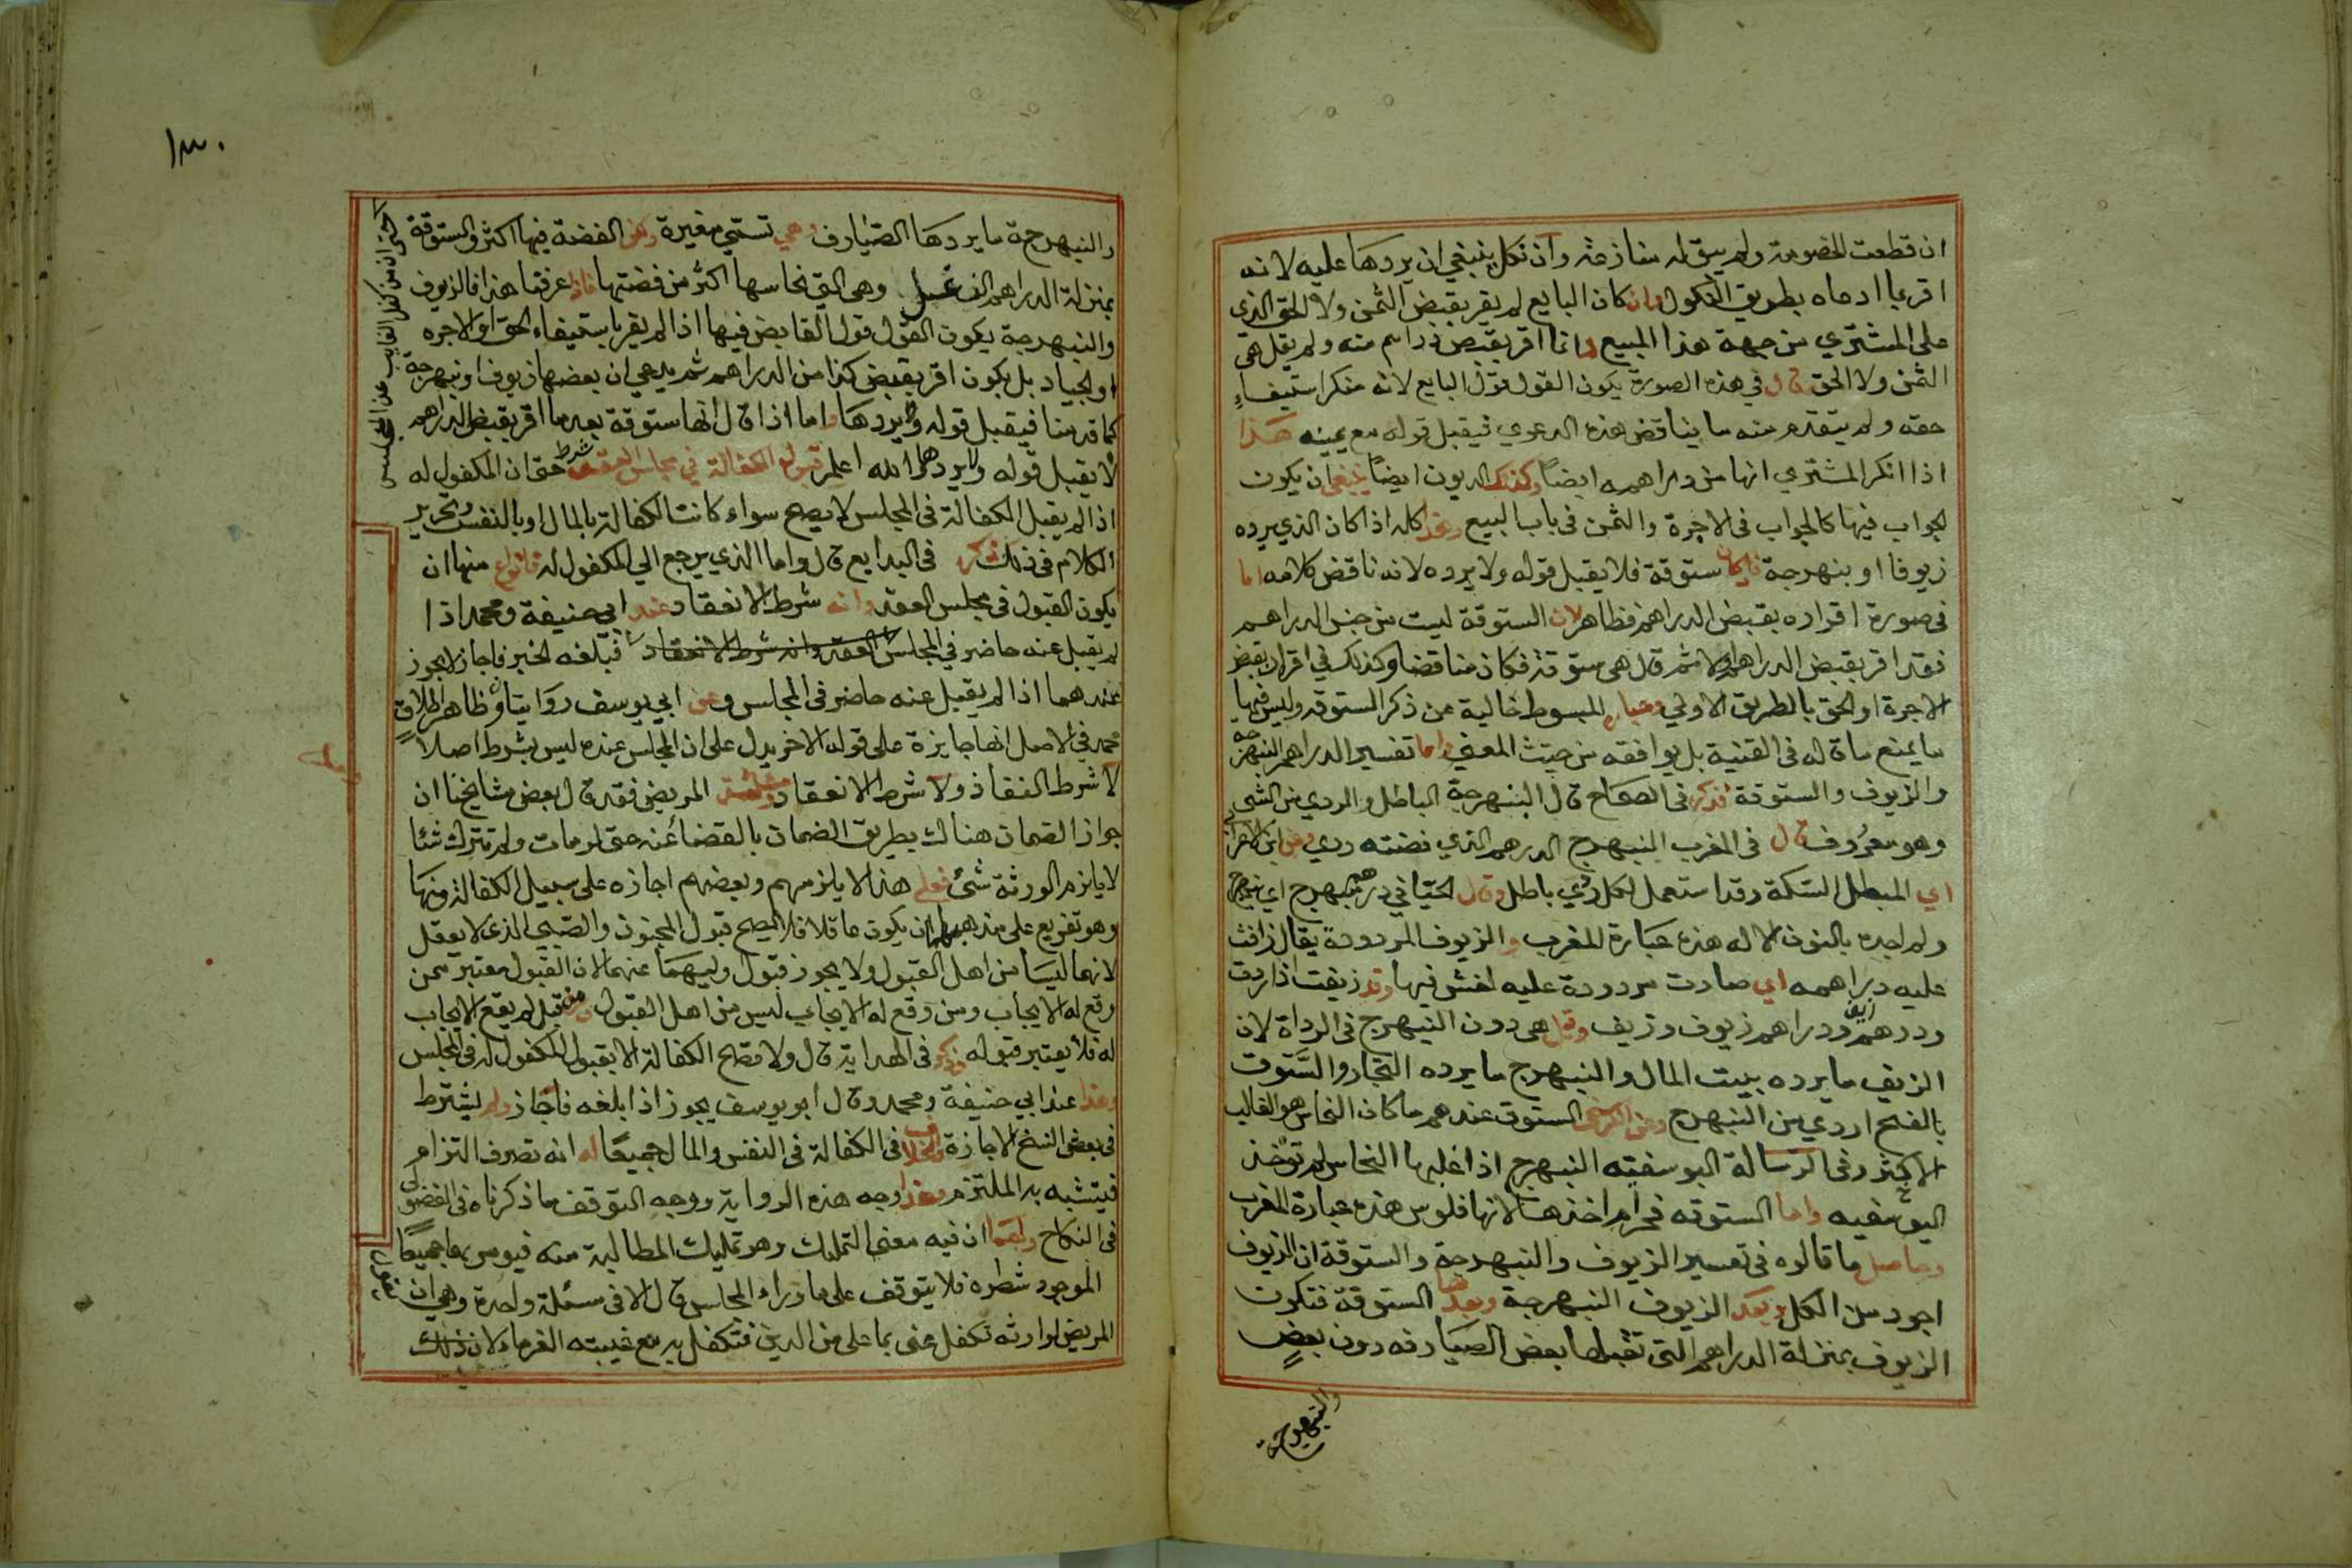 ان قطعت الخصومة ولم يبق له منازعة وان نكل ينبغي ان يردها عليه لانه
اقر بما ادعاه بطريق النكول وان كان البايع لم يقر بقبض الثمن ولا الحق الذي
على المشتري من جهة هذا المبيع وانما اقر بقبض دراهم منه ولم يقل هي
الثمن ولا الحق قال في هذه الصورة يكون القول قول البايع لانه منكر استيفاء
حقه ولم يتقدم منه ما يناقض هذه الدعوي فيقبل قوله مع يمينه هذا
اذا انكر المشتري انها من دراهمه ايضاً وكذلك الديون ايضاً ينبغي ان يكون
الجواب فيها كالجواب في الاجرة والثمن في باب البيع وهذا كله اذا كان الذي يرده
زيوفا او بنهرجة فان كان ستوقة فلا يقبل قوله ولا يرده لانه ناقض كلامه اما
في صورة اقراره بقبض الدراهم فظاهر لان الستوقة ليست من جنس الدراهم
فقد اقر بقبض الدراهم اولا ثم قال هي ستوقة فكان مناقضا وكذلك في اقراره بقبض
الاجرة او الحق بالطريق الاولي وعبارة المبسوط خالية عن ذكر الستوقة وليس فيها
ما يمنع ما قاله في القنية بل يوافقه من حيث المعني واما تفسير الدراهم النبهرجه
والزيوف والستوقة فذكر في الصحاح قال البنهرجة الباطل والردي من الشي
وهو معروف قال في المغرب النبهرج الدرهم الذي فضته ردي وعن ابن الاعرابي
اي المبطل السكة وقد استعمل لكل ردي باطل وقال اللحياني درهم نبهرج اي بنهرج
ولم اجده بالنون الا له هذه عبارة المغرب والزيوف المردودة يقال زافت
عليه دراهمه اي صارت مردودة عليه لغش فيها وقد زيفت اذا ردت
ودرهم زايف ودراهم زيوف وزيف وقيل هي دون النبهرج في الرداة لان
الزيف ما يرده بيت المال والنبهرج ما يرده التجار والستوق
بالفتح اردي من النبهرج وعن الكرخي الستوق عندهم ما كان النحاس هو الغالب
الاكثر وفي الرسالة اليوسفية النبهرج اذا غلبها النحاس لم تؤخذ
واما الستوقه فحرام اخذها لانها فلوس هذه عبارة المغرب
وحاصل ما قالوه في تفسير الزيوف والنبهرجة والستوقة ان الزيوف
اجود من الكل وبعد الزيوف النبهرجة وبعدها الستوقة فتكون
الزيوف بمنزلة الدراهم التي تقبلها بعض الصيارفه دون بعض
والنبهرجة
١٣٠
والنبهرجة ما يردها الصيارف وهي تسمي مغيرة ولكن الفضة فيها اكثر والستوقة
بمنزلة الدراهم الزغل وهي التي نحاسها اكثر من فضتها فاذا عرفنا هذا فالزيوف
والنبهرجة يكون القول قول القابض فيها اذا لم يقر باستيفاء الحق او الاجره
او الجياد بل يكون اقر بقبض كذا من الدراهم ثم يدعي ان بعضها زيوف او نبهرجة
كما قدمنا فيقبل قوله ويردها واما اذا قال انها ستوقة بعد ما اقر بقبض الدراهم
لا يقبل قوله ولا يردها والله اعلم قبول الكفالة في مجلس العقد شرط حتى ان المكفول له
اذا لم يقبل الكفالة في المجلس لا يصح سواء كانت الكفالة بالمال او بالنفس وتحرير
الكلام في ذلك ذكر في البدايع قال واما الذي يرجع الي المكفول له فانواع منها ان
يكون القبول في مجلس العقد وانه شرط الانعقاد عند ابي حنيفة ومحمد اذا
لم يقبل عنه حاضر في المجلس العقد وانه شرط الانعقاد فبلغه الخبر فاجاز لا يجوز
عندهما اذا لم يقبل عنه حاضر في المجلس وعن ابي يوسف روايتان وظاهر اطلاق
محمد في الاصل انها جايزة على قوله الاخر يدل على ان المجلس عنده ليس بشرط اصلا
لا شرط النفاذ ولا شرط الانعقاد ومسئلة المريض فقد قال بعض مشايخنا ان
جواز الضمان هناك بطريق الضمان بالقضا عنه حتى لو مات ولم يترك شئا
لا يلزم الورثة شئ فعلي هذا لا يلزمهم وبعضهم اجازه على سبيل الكفالة ومنها
وهو تفريع على مذهبهما ان يكون عاقلا فلا يصح قبول المجنون والصبي الذي لا يعقل
لانهما ليسا من اهل القبول ولا يجوز قبول وليهما عنهما لان القبول معتبر ممن
وقع له الايجاب ومن وقع له الايجاب ليس من اهل القبول ومن قبل لم يقع الايجاب
له فلا يعتبر قبوله وذكر في الهداية قال ولا تصح الكفالة الا بقبول المكفول له في المجلس
وهذا عند ابي حنيفة ومحمد وقال ابو يوسف يجوز اذا بلغه فاجاز ولم يشترط
في بعض النسخ الاجازة والخلاف في الكفالة في النفس والمال جميعًا له انه تصرف التزام
فيستبد به الملتزم وهذا وجه هذه الرواية ووجه التوقف ما ذكرناه في الفضولي
في النكاح ولهما ان فيه معني التمليك وهو تمليك المطالبة منه فيقوم بهما جميعًا
الموجود شطره فلا يتوقف على ما وراء المجلس قال الا في مسئلة واحدة وهي ان
المريض لوارثه تكفل عني بما علي من الدين فتكفل به مع غيبته الغرماء لان ذلك